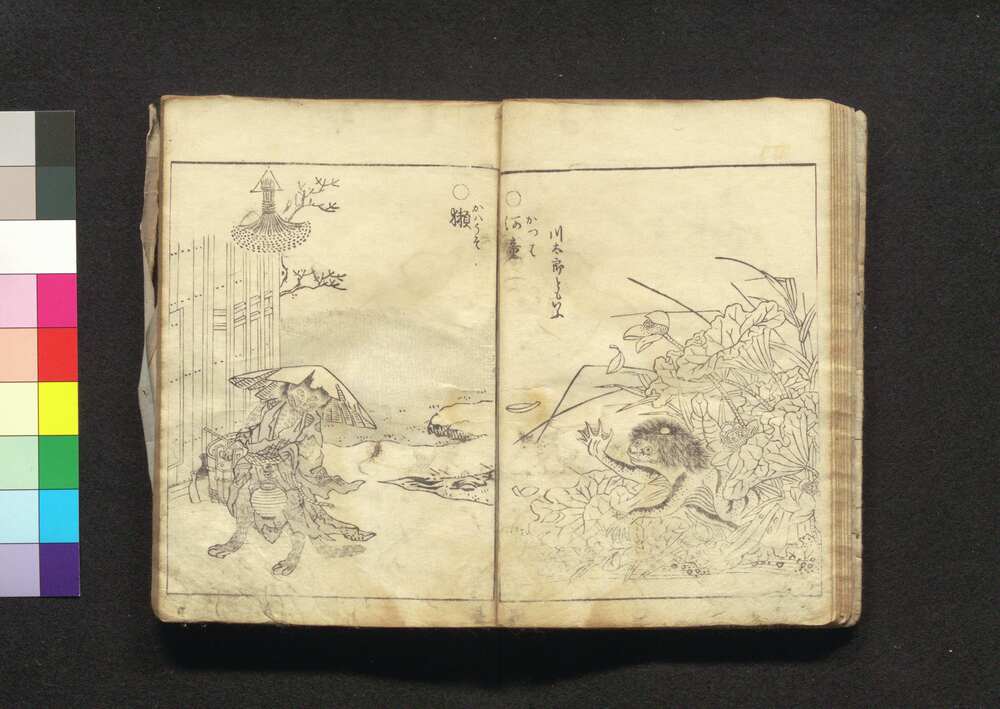 川太郎ともいふ
かつは
河童
かハうそ
獺